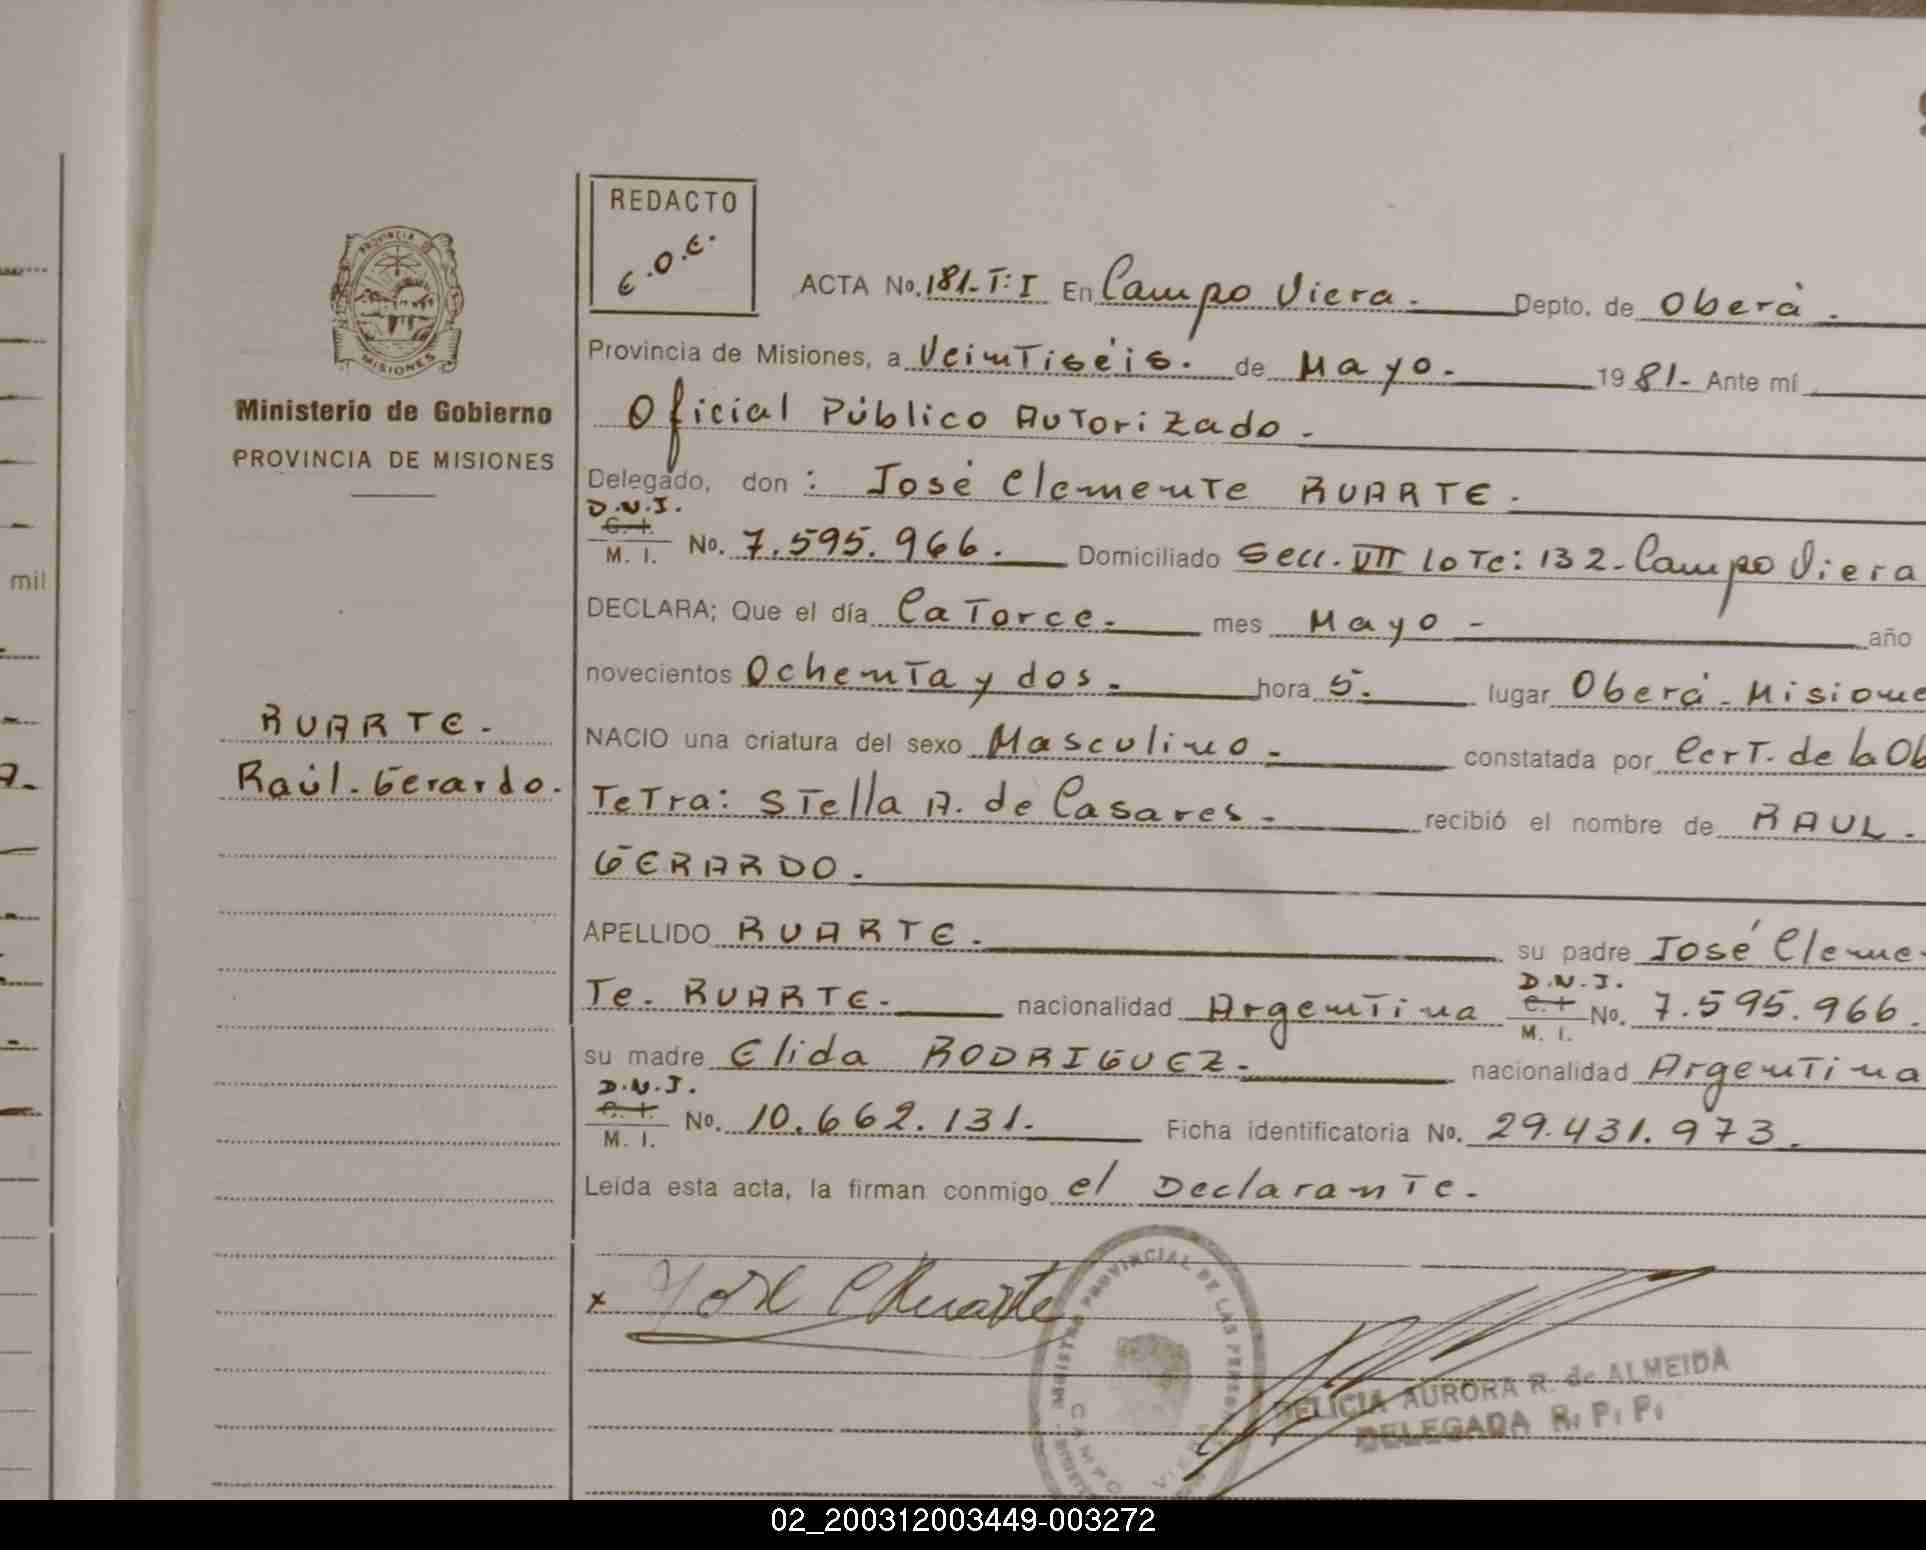 REDACTO
E.O.E.
PROVINCIA DE
MISIONES
Ministerio de Gobierno
PROVINCIA DE MISIONES
ACTA No. 181-T:I En Campo Viera. Depto. de Oberá.
Provincia de Misiones, a Veintiséis. de Mayo. 1981.- Ante mí
Oficial Público Autorizado.
Delegado, don: José Clemente RUARTE.
D.N.I.
C. I.
M. I. No. 7.595.966. Domiciliado Secc. VII lote: 132-Campo Viera
mil
DECLARA; Que el día Catorce. mes Mayo - año
novecientos Ochenta y dos. hora 5. lugar Oberá - Misione
RUARTE.
Raúl. Gerardo.
NACIO una criatura del sexo Masculino - constatada por Cert. de la Ob
Tetra: Stella A. de Casares. recibió el nombre de RAUL.
GERARDO.
APELLIDO RUARTE. su padre José Cleme-
te. RUARTE. nacionalidad Argentina D.N.I. C. I. M. I. No. 7.595.966.
su madre Elida RODRIGUEZ. nacionalidad Argentina
D.N.I.
C. I.
M. I. No. 10.662.131. Ficha identificatoria No. 29.431.973.
Leida esta acta, la firman conmigo el Declarante.
x José C Ruarte
PROVINCIAL DE LAS PERSO
CAMPO VIERA
DELICIA AURORA R. de ALMEIDA
DELEGADA R. P. P.
02_200312003449-003272